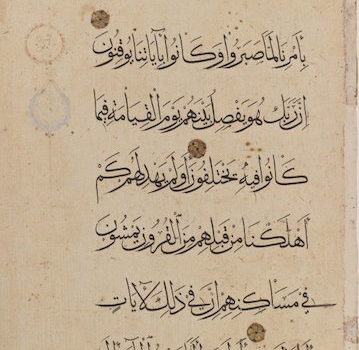 بِأَمْرِنَا لَمَّا صَبَرُوا وَكَانُوا بِآيَاتِنَا يُوقِنُونَ
إِنَّ رَبَّكَ هُوَ يَفْصِلُ بَيْنَهُمْ يَوْمَ الْقِيَامَةِ فِيمَا
كَانُوا فِيهِ يَخْتَلِفُونَ أَوَلَمْ يَهْدِ لَهُمْ كَمْ
أَهْلَكْنَا مِنْ قَبْلِهِمْ مِنَ الْقُرُونِ يَمْشُونَ
فِي مَسَاكِنِهِمْ إِنَّ فِي ذَلِكَ لَآيَاتٍ